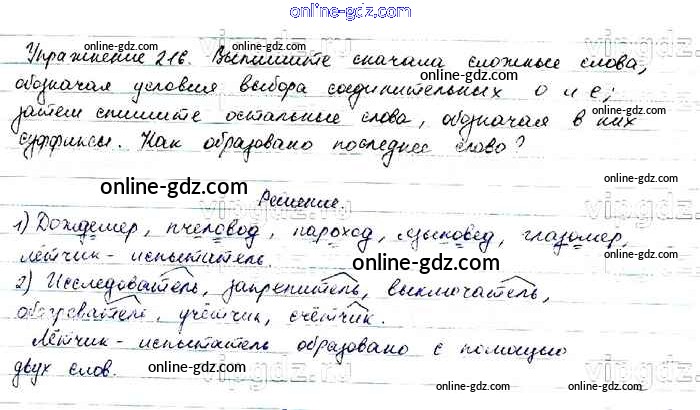 online-gdz.com
Упражнение 216. Выпишите сначала сложные слова,
обозначая условия выбора соединительных о и е;
затем спишите остальные слова, обозначая в них
суффиксы. Как образовано последнее слово?
Решение.
1) Дождемер, пчеловод, пароход, языковед, глазомер,
лётчик-испытитель.
2) Исследователь, закрепитель, выключатель,
обогреватель, учётчик, счётчик.
Лётчик-испытатель образовано с помощью
двух слов.
online-gdz.com
online-gdz.com
online-gdz.com
online-gdz.com
online-gdz.com
online-gdz.com
online-gdz.com
online-gdz.com
online-gdz.com
online-gdz.com
online-gdz.com